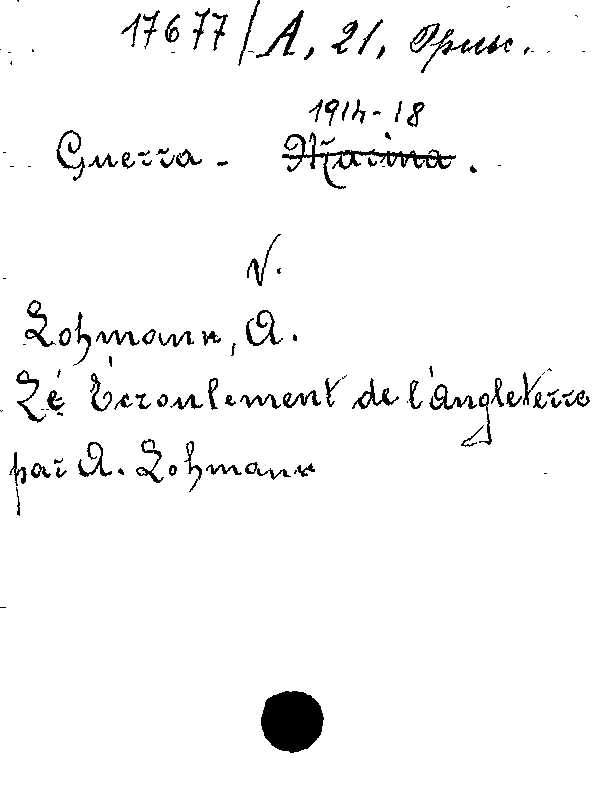 17677/A, 21, Opusc.
1914-18
Guerra - Marina.
V.
Lohmann, A.
Lé Écroulement de l'Angleterre
par A. Lohmann